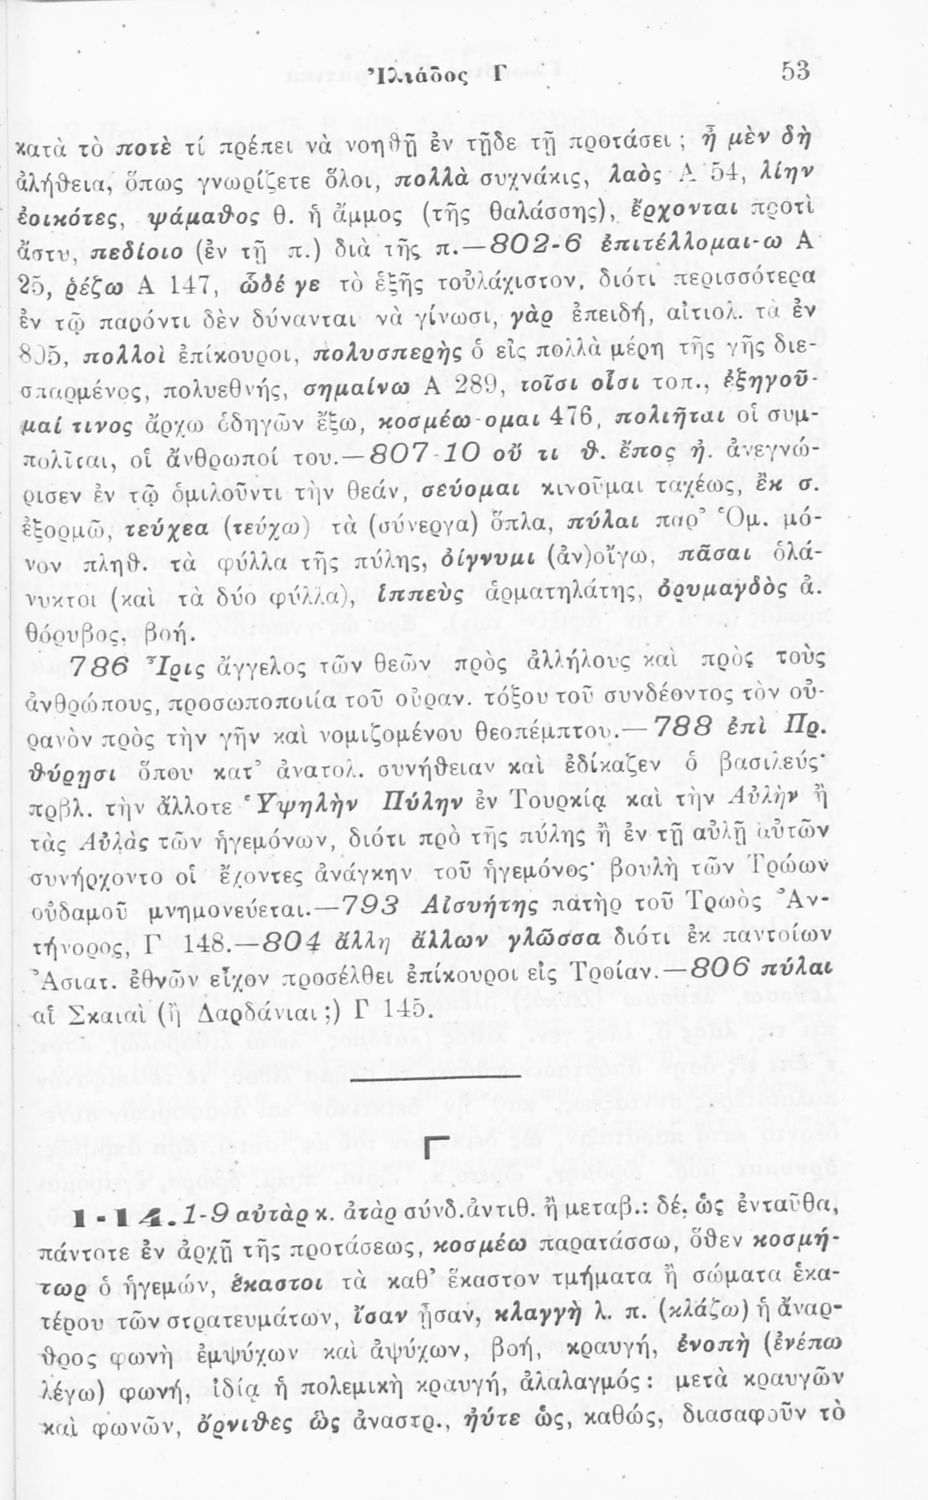 Ἰλιάδος Γ 53
κατὰ τὸ ποτὲ τί πρέπει νὰ νοηθῇ ἐν τῇδε τῇ προτάσει ; ἦ μὲν δὴ
ἀλήθεια, ὅπως γνωρίζετε ὅλοι, πολλὰ συχνάκις, λαὸς Α 54, λίην
ἐοικότες, ψάμαθος θ. ἡ ἄμμος (τῆς θαλάσσης), ἔρχονται προτὶ
ἄστυ, πεδίοιο (ἐν τῇ π.) διὰ τῆς π.—802-6 ἐπιτέλλομαι-ω Α
25, ῥέζω Α 147, ὧδέ γε τὸ ἑξῆς τοὐλάχιστον, διότι περισσότερα
ἐν τῷ παρόντι δὲν δύνανται νὰ γίνωσι, γὰρ ἐπειδή, αἰτιολ. τὰ ἐν
805, πολλοὶ ἐπίκουροι, πολυσπερὴς ὁ εἰς πολλὰ μέρη τῆς γῆς διε-
σπαρμένος, πολυεθνής, σημαίνω Α 289, τοῖσι οἷσι τοπ., ἐξηγοῦ-
μαί τινος ἄρχω ὁδηγῶν ἔξω, κοσμέω-ομαι 476, πολιῆται οἱ συμ-
πολῖται, οἱ ἄνθρωποί του.—807-10 οὔ τι θ. ἔπος ἠ. ἀνεγνώ-
ρισεν ἐν τῷ ὁμιλοῦντι τὴν θεάν, σεύομαι κινοῦμαι ταχέως, ἔκ σ.
ἐξορμῶ, τεύχεα (τεύχω) τὰ (σύνεργα) ὅπλα, πύλαι παρ’ Ὁμ. μό-
νον πληθ. τὰ φύλλα τῆς πύλης, ὀίγνυμι (ἀν)οἴγω, πᾶσαι ὁλά-
νυκτοι (καὶ τὰ δύο φύλλα), ἱππεὺς ἁρματηλάτης, ὀρυμαγδὸς ἀ.
θόρυβος, βοή.
786 Ἶρις ἄγγελος τῶν θεῶν πρὸς ἀλλήλους καὶ πρὸς τοὺς
ἀνθρώπους, προσωποποιία τοῦ οὐραν. τόξου τοῦ συνδέοντος τὸν οὐ-
ρανὸν πρὸς τὴν γῆν καὶ νομιζομένου θεοπέμπτου.—788 ἐπὶ Πρ.
θύρῃσι ὅπου κατ’ ἀνατολ. συνήθειαν καὶ ἐδίκαζεν ὁ βασιλεύς·
πρβλ. τὴν ἄλλοτε Ὑψηλὴν Πύλην ἐν Τουρκίᾳ καὶ τὴν Αὐλὴν ἢ
τὰς Αὐλὰς τῶν ἡγεμόνων, διότι πρὸ τῆς πύλης ἢ ἐν τῇ αὐλῇ αὐτῶν
συνήρχοντο οἱ ἔχοντες ἀνάγκην τοῦ ἡγεμόνος· βουλὴ τῶν Τρώων
οὐδαμοῦ μνημονεύεται.—793 Αἰσυήτης πατὴρ τοῦ Τρωὸς Ἀν-
τήνορος, Γ 148.—804 ἄλλη ἄλλων γλῶσσα διότι ἐκ παντοίων
Ἀσιατ. ἐθνῶν εἶχον προσέλθει ἐπίκουροι εἰς Τροίαν.—806 πύλαι
αἱ Σκαιαὶ (ἢ Δαρδάνιαι ;) Γ 145.
Γ
1-14. 1-9 αὐτὰρ κ. ἀτὰρ σύνδ. ἀντιθ. ἢ μεταβ.: δέ, ὡς ἐνταῦθα,
πάντοτε ἐν ἀρχῇ τῆς προτάσεως, κοσμέω παρατάσσω, ὅθεν κοσμή-
τωρ ὁ ἡγεμών, ἕκαστοι τὰ καθ’ ἕκαστον τμήματα ἢ σώματα ἑκα-
τέρου τῶν στρατευμάτων, ἴσαν ᾖσαν, κλαγγὴ λ. π. (κλάζω) ἡ ἄναρ-
θρος φωνὴ ἐμψύχων καὶ ἀψύχων, βοή, κραυγή, ἐνοπὴ (ἐνέπω
λέγω) φωνή, ἰδίᾳ ἡ πολεμικὴ κραυγή, ἀλαλαγμός : μετὰ κραυγῶν
καὶ φωνῶν, ὄρνιθες ὣς ἀναστρ., ἠύτε ὡς, καθώς, διασαφοῦν τὸ